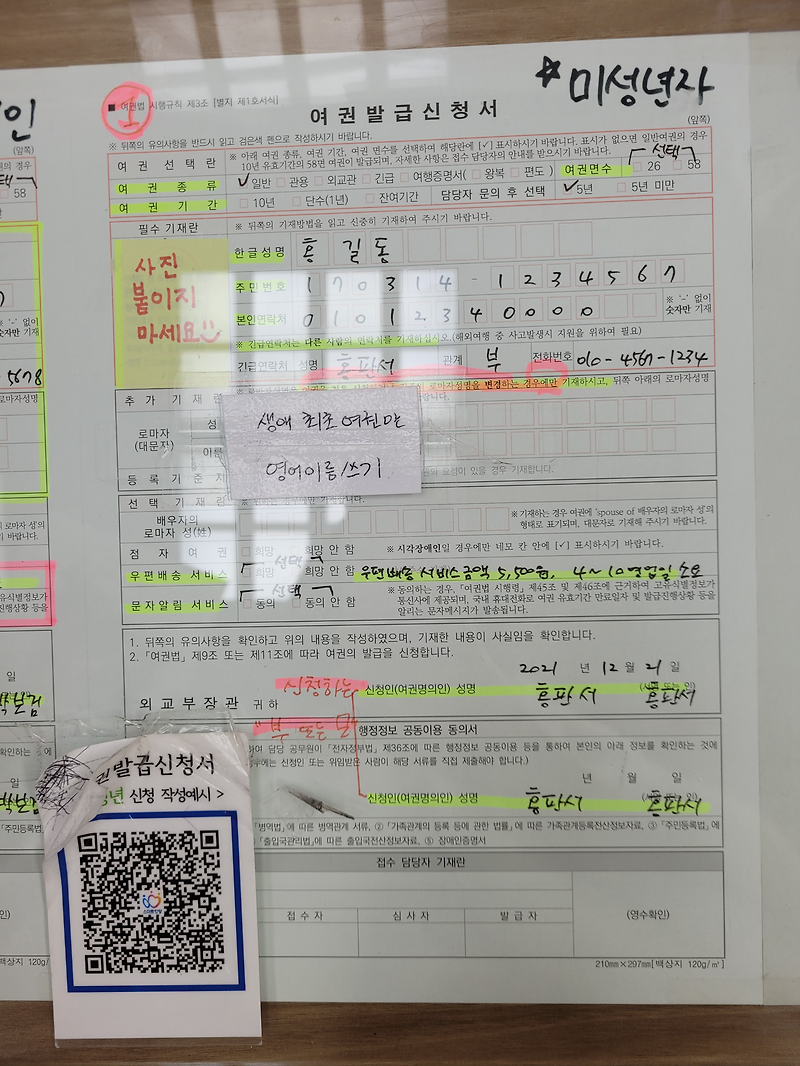 ☆미성년자
1
■ 여권법 시행규칙 제3조 [별지 제1호서식]
여권발급신청서
(앞쪽)
※ 뒤쪽의 유의사항을 반드시 읽고 검은색 펜으로 작성하시기 바랍니다.
여 권 선 택 란
※ 아래 여권 종류, 여권 기간, 여권 면수를 선택하여 해당란에 [✓] 표시하시기 바랍니다. 표시가 없으면 일반여권의 경우
10년 유효기간의 58면 여권이 발급되며, 자세한 사항은 접수 담당자의 안내를 받으시기 바랍니다.
선택
여 권 종 류 ✓일반 관용 외교관 긴급 여행증명서( 왕복 편도 ) 여권면수 26 58
여 권 기 간 10년 단수(1년) 잔여기간 담당자 문의 후 선택 ✓5년 5년 미만
필수 기재란 ※ 뒤쪽의 기재방법을 읽고 신중히 기재하여 주시기 바랍니다.
사진
붙이지
마세요
한글성명 홍 길 동
주민번호 1 7 0 3 1 4 - 1 2 3 4 5 6 7
본인연락처 0 1 0 1 2 3 4 0 0 0 0
※ '-' 없이
숫자만 기재
※ 긴급연락처는 다른 사람의 연락처를 기재하십시오.(해외여행 중 사고발생시 지원을 위하여 필요)
긴급연락처 성명 홍판서 관계 부 전화번호 010-4567-1234
추 가 기 재 란
로마자성명을 변경하는 경우에만 기재하시고, 뒤쪽 아래의 로마자성명
로마자
(대문자)
성
이름
생애 최초 여권만
영어이름쓰기
등 록 기 준 지
경우 기재합니다.
선 택 기 재 란
배우자의
로마자 성(姓)
※ 기재하는 경우 여권에 'spouse of 배우자의 로마자 성'의
형태로 표기되며, 대문자로 기재해 주시기 바랍니다.
점 자 여 권 희망 희망 안 함 ※ 시각장애인일 경우에만 네모 칸 안에 [✓] 표시하시기 바랍니다.
선택
우편배송 서비스 희망 희망 안 함 우편배송 서비스금액 5,500원, 4~10영업일 소요
선택
문자알림 서비스 동의 동의 안 함
※ 동의하는 경우, 「여권법 시행령」 제45조 및 제46조에 근거하여 고유식별정보가
통신사에 제공되며, 국내 휴대전화로 여권 유효기간 만료일자 및 발급진행상황 등을
알리는 문자메시지가 발송됩니다.
1. 뒤쪽의 유의사항을 확인하고 위의 내용을 작성하였으며, 기재한 내용이 사실임을 확인합니다.
2. 「여권법」 제9조 또는 제11조에 따라 여권의 발급을 신청합니다.
2021 년 12 월 21 일
신청하는
신청인(여권명의인) 성명 홍판서 홍판서
외교부장관 귀하
"부 또는 모
행정정보 공동이용 동의서
하여 담당 공무원이 「전자정부법」 제36조에 따른 행정정보 공동이용 등을 통하여 본인의 아래 정보를 확인하는 것에
우에는 신청인 또는 위임받은 사람이 해당 서류를 직접 제출해야 합니다.)
년 월 일
신청인(여권명의인) 성명 홍판서 홍판서
「병역법」에 따른 병역관계 서류, ② 「가족관계의 등록 등에 관한 법률」에 따른 가족관계등록전산정보자료, ③ 「주민등록법」에
「출입국관리법」에 따른 출입국전산정보자료, ⑤ 장애인증명서
접수 담당자 기재란
접 수 자 심 사 자 발 급 자 (영수확인)
210㎜×297㎜[백상지 120g/㎡]
권발급신청서
년 신청 작성예시 >